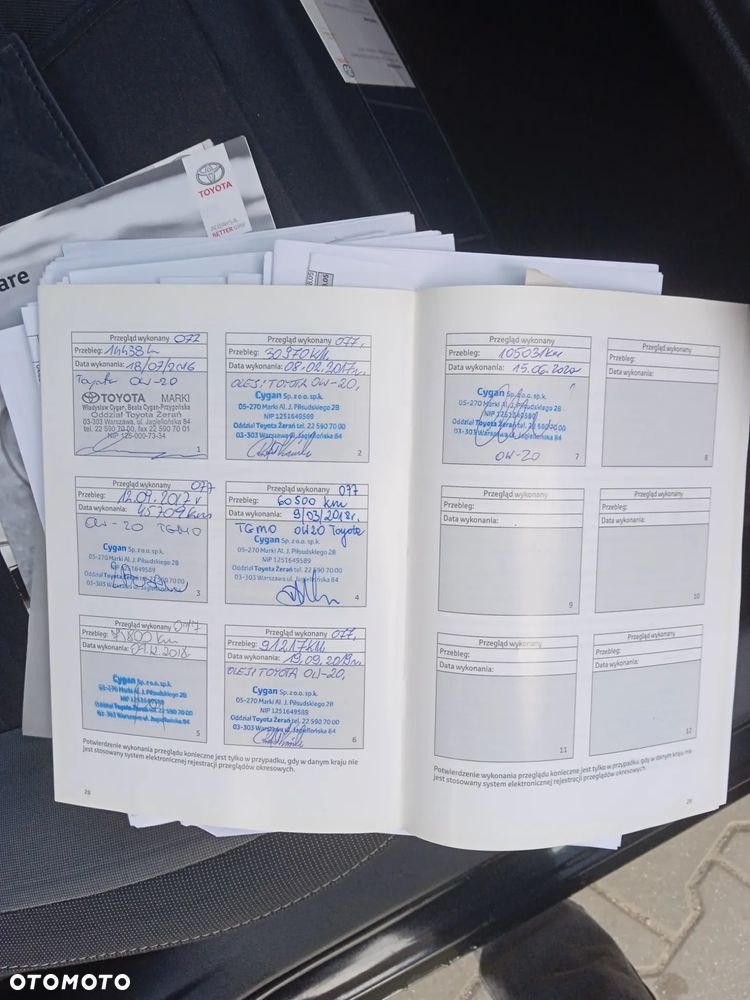 TOYOTA
ALWAYS A
BETTER WAY
are
Przegląd wykonany 077
Przebieg: 14438km
Data wykonania: 18/07/2016
Toyota OW-20
TOYOTA MARKI
Władysław Cygan, Beata Cygan-Przygońska
Oddział Toyota Żerań
03-303 Warszawa, ul. Jagiellońska 84
tel. 22 590 70 00, fax 22 590 70 01
NIP 125-000-73-34
1
Przegląd wykonany 077,
Przebieg: 30970KM,
Data wykonania: 08.02.2017r.
OLEJ: TOYOTA OW-20,
Cygan Sp. z o.o. sp.k.
05-270 Marki Al. J. Piłsudskiego 2B
NIP 1251649589
Oddział Toyota Żerań tel. 22 590 70 00
03-303 Warszawa ul. Jagiellońska 84
2
Przegląd wykonany 077
Przebieg: 12.09.2017 r
Data wykonania: 45709km
OW-20 TGMO
Cygan Sp. z o.o. sp.k.
05-270 Marki Al. J. Piłsudskiego 2B
NIP 1251649589
Oddział Toyota Żerań tel. 22 590 70 00
03-303 Warszawa ul. Jagiellońska 84
3
Przegląd wykonany 077
Przebieg: 60500 km
Data wykonania: 9/03/2018r.
TGMO OW20 Toyota
Cygan Sp. z o.o. sp.k.
05-270 Marki Al. J. Piłsudskiego 2B
NIP 1251649589
Oddział Toyota Żerań tel. 22 590 70 00
03-303 Warszawa ul. Jagiellońska 84
4
Przegląd wykonany
Przebieg: km
Data wykonania: 12.2018
Cygan Sp. z o.o. sp.k.
05-270 Marki Al. J. Piłsudskiego 2B
NIP 1251649589
Oddział Toyota Żerań tel. 22 590 70 00
03-303 Warszawa ul. Jagiellońska 84
5
Przegląd wykonany 077,
Przebieg: 91217KM,
Data wykonania: 19.09.2019r.
OLEJ: TOYOTA OW-20,
Cygan Sp. z o.o. sp.k.
05-270 Marki Al. J. Piłsudskiego 2B
NIP 1251649589
Oddział Toyota Żerań tel. 22 590 70 00
03-303 Warszawa ul. Jagiellońska 84
6
Potwierdzenie wykonania przeglądu konieczne jest tylko w przypadku, gdy w danym kraju nie
jest stosowany system elektronicznej rejestracji przeglądów okresowych.
28
Przegląd wykonany
Przebieg: 105031km
Data wykonania: 15.06.2020
Cygan Sp. z o.o. sp.k.
05-270 Marki Al. J. Piłsudskiego 2B
NIP 1251649589
Oddział Toyota Żerań tel. 22 590 70 00
03-303 Warszawa ul. Jagiellońska 84
OW-20
7
Przegląd wykonany
Przebieg:
Data wykonania:
8
Przegląd wykonany
Przebieg:
Data wykonania:
9
Przegląd wykonany
Przebieg:
Data wykonania:
10
Przegląd wykonany
Przebieg:
Data wykonania:
11
Przegląd wykonany
Przebieg:
Data wykonania:
12
Potwierdzenie wykonania przeglądu konieczne jest tylko w przypadku, gdy w danym kraju nie
jest stosowany system elektronicznej rejestracji przeglądów okresowych.
29
OTOMOTO